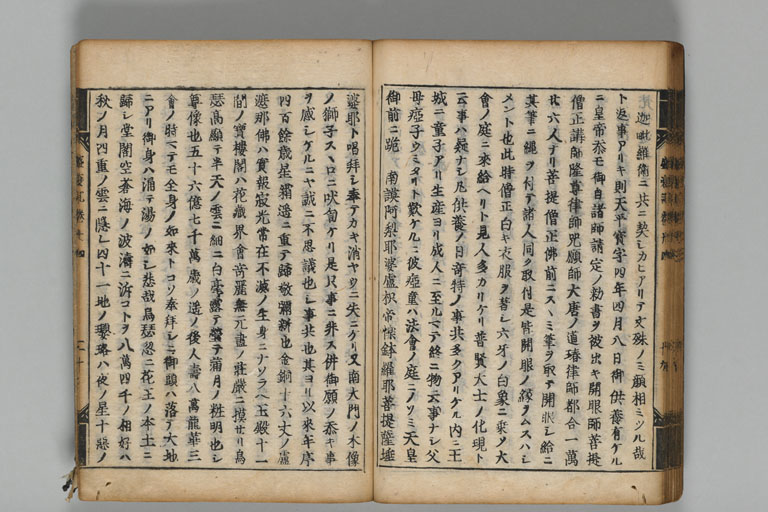 迦毗羅衛ニ共ニ契シカヒアリテ文殊ノミ顔相ミツル哉
ト返事アリキ則天平寳字四年四月八日御供養有ケル
ニ皇帝忝モ御自諸師請定ノ勅書ヲ被出キ開眼師菩提
僧正講師隆尊律師呪願師大唐ノ道璿律師都合一萬
廿六人ナリ菩提僧正佛前ニスヽミ筆ヲ取テ開眼シ給ニ
其筆ニ繩ヲ付テ諸人同ク取付是皆開眼ノ縁ヲムスハシ
メント也此時僧正白キ衣服ヲ着シ六牙ノ白象ニ乗ノ大
會ノ庭ニ來給ヘリト見人多カリケリ普賢大士ノ化現ト
云事ハ疑ナシ凡供養ノ日奇特ノ事共多クアリケル内ニ王
城ニ童子アリ生産ヨリ成人ニ至ルマテ終ニ物云事ナシ父
母瘂子ウミタリト歎ケルニ彼瘂童ハ法會ノ庭ニノソミ天皇
御前ニ跪 南謨阿梨耶婆盧枳帝爍鉢羅耶菩提薩埵
婆耶ト唱拜シ奉テカキ消ヤウニ失ニケリ又南大門ノ木像
ノ獅子スヽロニ吠匐ケリ是只事ニ非ス併御願ノ忝キ事
ヲ感シケルニヤ誠ニ不思議也シ事共也其ヨリ以來年序
四百餘歳星霜遙ニ重テ歸敬彌新也金銅十六丈ノ盧
遮那佛ハ實報寂光常在不滅ノ生身ニナソラヘ玉殿十一
間ノ寶樓閣ハ花藏界會無盡ノ莊嚴ニ摸セリ烏
瑟高顯テ半天ノ雲ニ細ニ白毫露テ瑩テ滿月ノ粧明也シ
尊像也五十六億七千萬歳ノ遙ノ後人壽八萬龍華三
會ノ時ヘテモ全身ノ如來トコソ奉拜シニ御頭ハ落テ大地
ニアリ御身ハ涌テ湯ノ如シ悲哉烏瑟忽ニ花王ノ本土ニ
歸シ堂閣空蒼海ノ波濤ニ泝コトヲ八萬四千ノ相好ハ
秋ノ月四重ノ雲ニ隱シ四十一地ノ瓔珞ハ夜ノ星十惡ノ